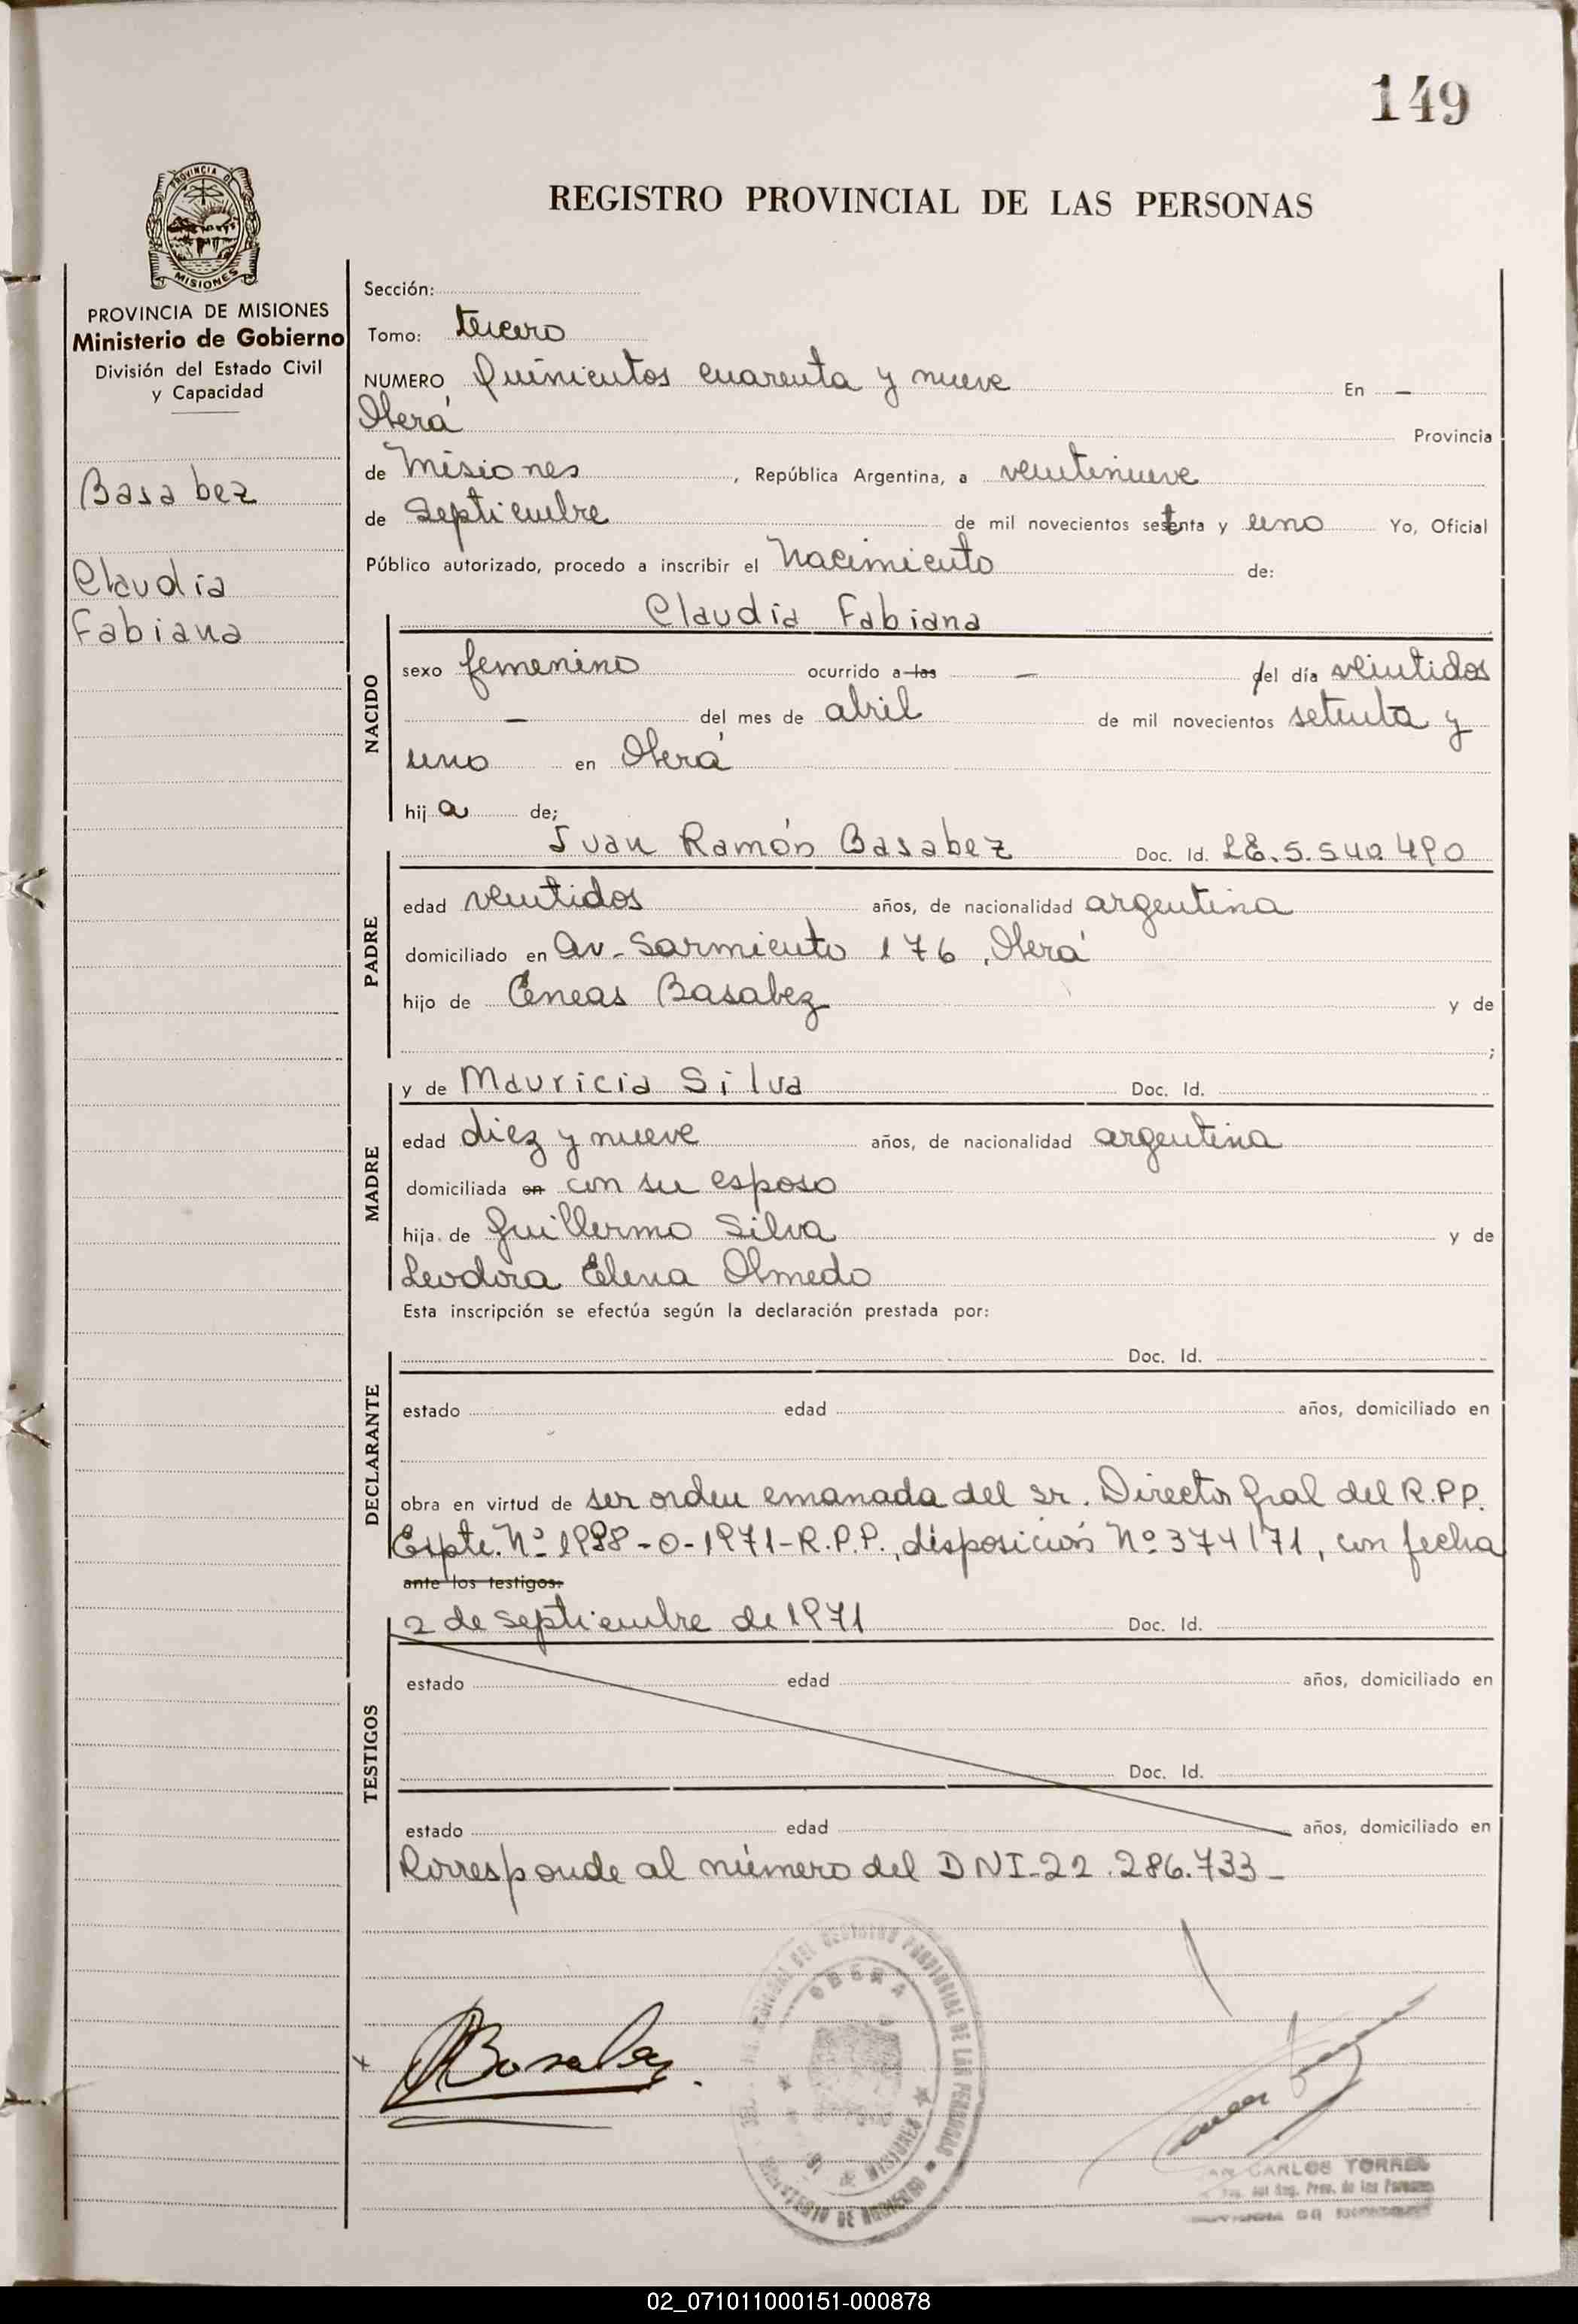 149
PROVINCIA DE
MISIONES
REGISTRO PROVINCIAL DE LAS PERSONAS
PROVINCIA DE MISIONES
Ministerio de Gobierno
División del Estado Civil
y Capacidad
Basabez
Claudia
Fabiana
Sección:
Tomo: tercero
NUMERO Quinientos cuarenta y nueve En —
Oberá Provincia
de Misiones, República Argentina, a veintinueve
de Septiembre de mil novecientos setenta y uno Yo, Oficial
Público autorizado, procedo a inscribir el Nacimiento de:
Claudia Fabiana
NACIDO
sexo femenino ocurrido a las — del día veintidos
— del mes de abril de mil novecientos setenta y
uno en Oberá
hija de;
Juan Ramón Basabez Doc. Id. LE. 5.540.490
PADRE
edad veintidos años, de nacionalidad argentina
domiciliado en Av. Sarmiento 176, Oberá
hijo de Eneas Basabez y de
;
y de Mauricia Silva Doc. Id.
MADRE
edad diez y nueve años, de nacionalidad argentina
domiciliada en con su esposo
hija de Guillermo Silva y de
Leodora Elena Olmedo
Esta inscripción se efectúa según la declaración prestada por:
Doc. Id.
DECLARANTE
estado edad años, domiciliado en
obra en virtud de ser orden emanada del sr. Director Gral del R.P.P.
Expte. Nº 1998-0-1971-R.P.P., disposición Nº 374/71, con fecha
ante los testigos:
2 de septiembre de 1971 Doc. Id.
TESTIGOS
estado edad años, domiciliado en
Doc. Id.
estado edad años, domiciliado en
Corresponde al número del DNI-22.286.733-
Basabez
OBERA
MISIONES
MINISTERIO DE GOBIERNO
DEL REGISTRO PROVINCIAL DE LAS PERSONAS
CARLOS TORRES
Prov. de las Personas
02_071011000151-000878